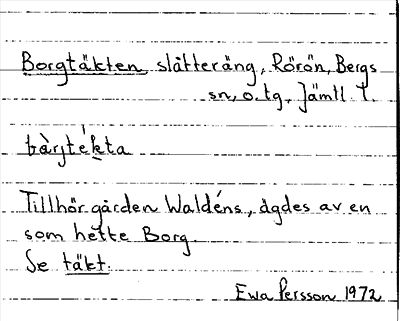 Borgtäkten, slåtteräng, Rörön, Bergs
sn, o. tg, Jämtl. l.
bàrjték̠ta
Tillhör gården Waldéns, ägdes av en
som hette Borg.
Se täkt.
Ewa Persson 1972